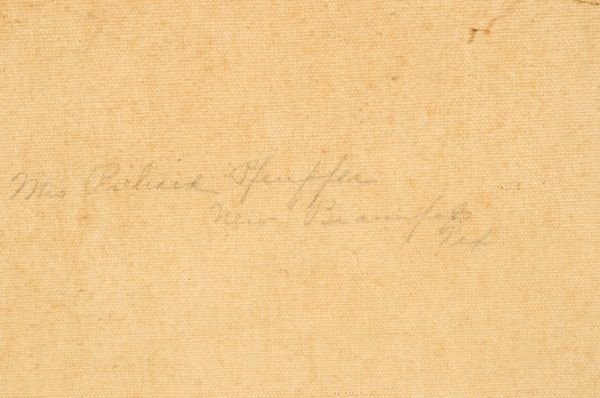 Mrs Richard Pfeuffer
New Braunfels
Tex